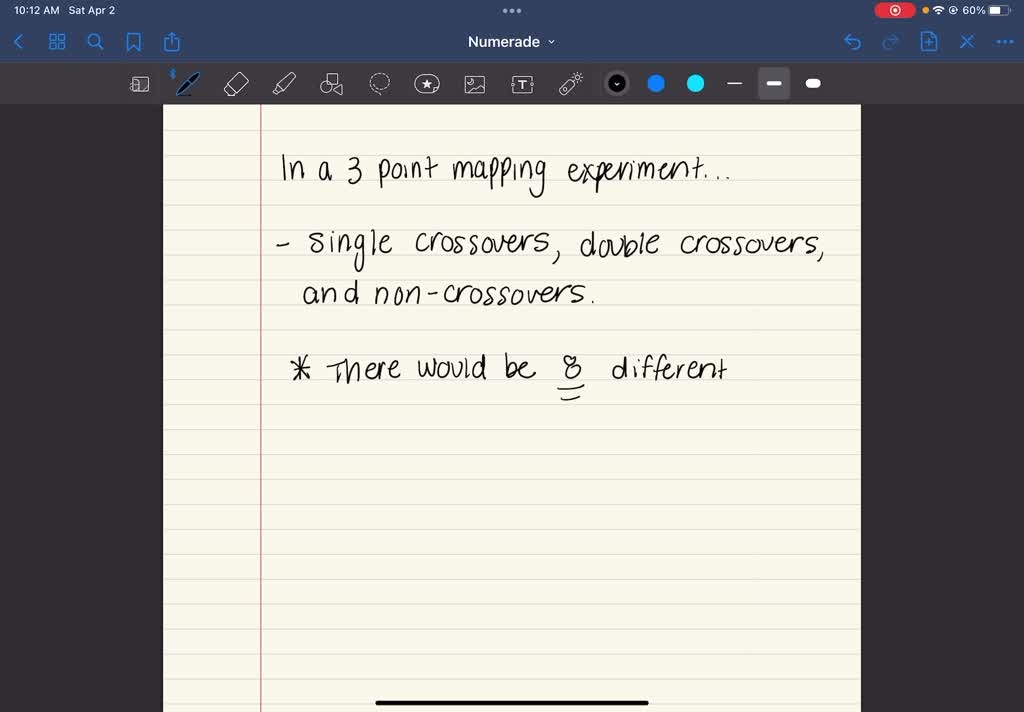 10:12 AM Sat Apr 2
60%
Numerade
In a 3 point mapping experiment...
- single crossovers, double crossovers,
and non-crossovers.
* There would be 8 different